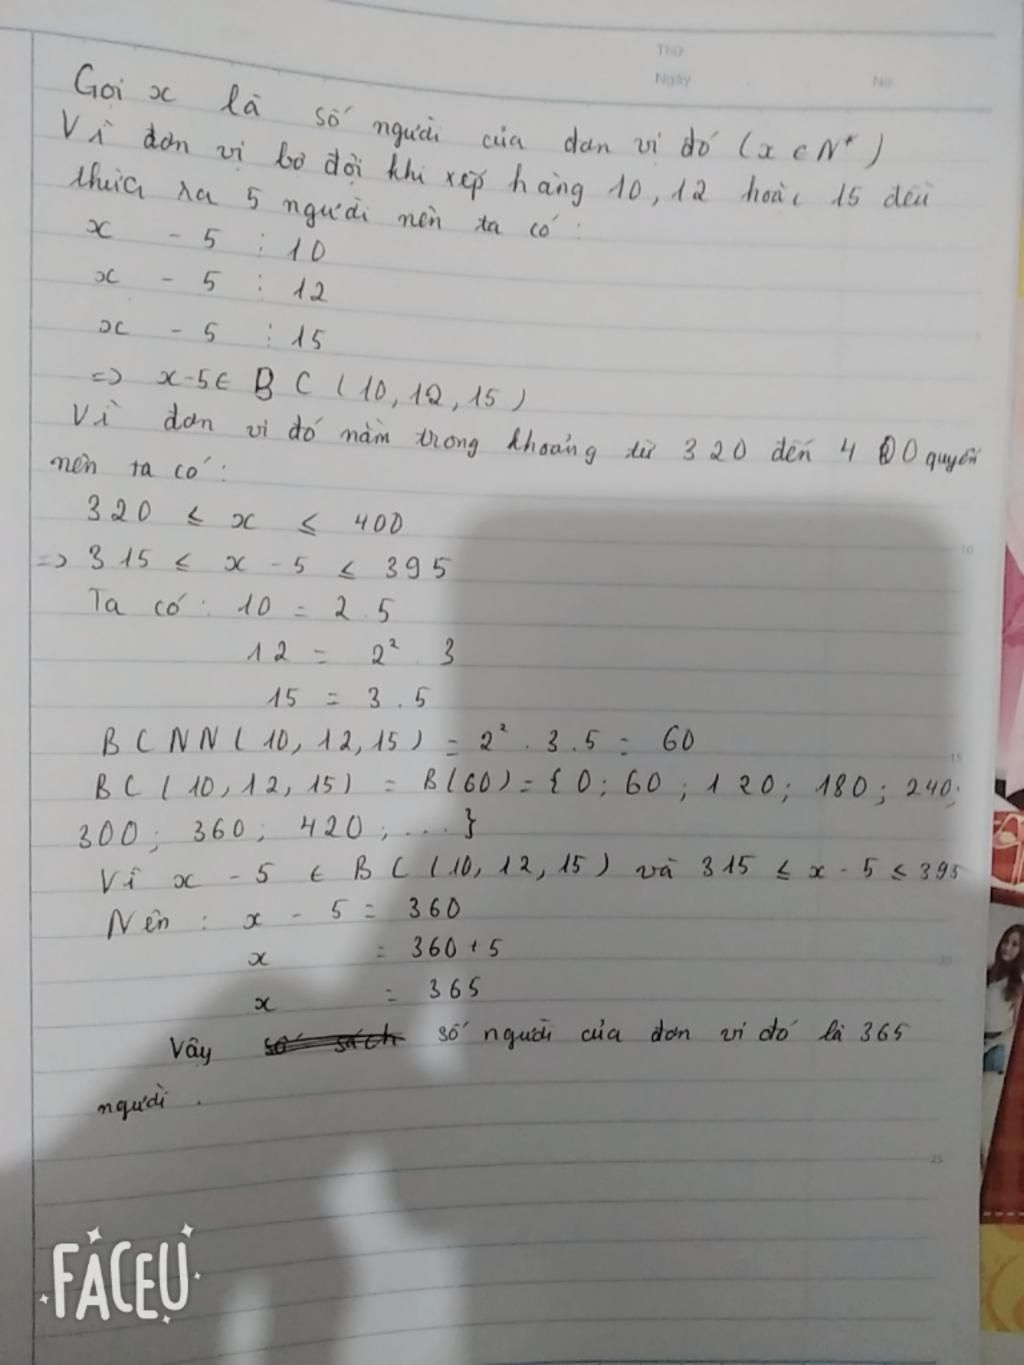 Thứ
Ngày No
Gọi x là số người của đơn vị đó (x ∈ N*)
Vì đơn vị bộ đội khi xếp hàng 10, 12 hoặc 15 đều
thừa ra 5 người nên ta có :
x - 5 ⋮ 10
x - 5 ⋮ 12
x - 5 ⋮ 15
=> x-5 ∈ BC (10, 12, 15)
Vì đơn vi đó nằm trong khoảng từ 320 đến 400 quyển
nên ta có :
320 ≤ x ≤ 400
=> 315 ≤ x - 5 ≤ 395
Ta có : 10 = 2 . 5
12 = 2² . 3
15 = 3 . 5
BCNN ( 10, 12, 15 ) = 2² . 3 . 5 = 60
BC ( 10, 12, 15 ) = B(60) = { 0 ; 60 ; 120 ; 180 ; 240 ;
300 ; 360 ; 420 ; ... }
Vì x - 5 ∈ BC (10, 12, 15) và 315 ≤ x - 5 ≤ 395
Nên : x - 5 = 360
x = 360 + 5
x = 365
Vậy số sách số người của đơn vi đó là 365
người .
10
15
20
25
FACEU